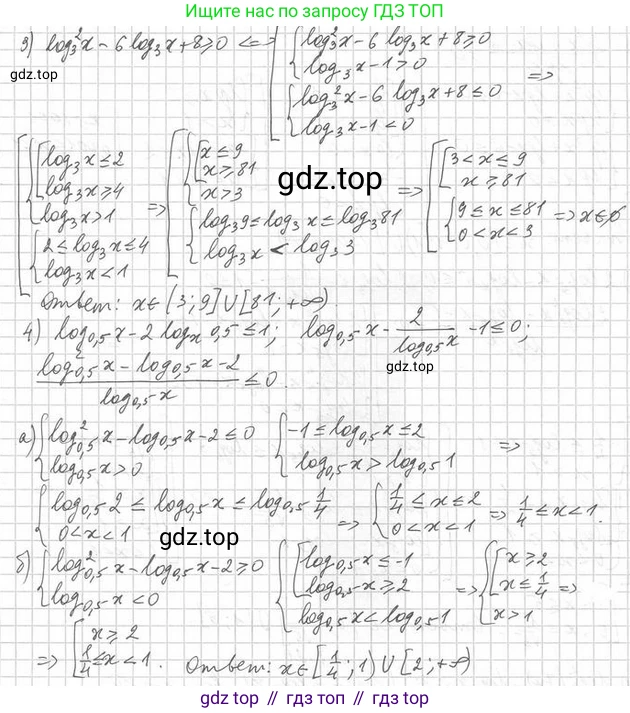 Ищите нас по запросу ГДЗ ТОП
gdz.top
3) log₃²x - 6 log₃x + 8 ≥ 0 <=> [ { log₃²x - 6 log₃x + 8 ≥ 0
log₃x - 1 > 0
{ log₃²x - 6 log₃x + 8 ≤ 0
log₃x - 1 < 0 =>
[ { [ log₃x ≤ 2
log₃x ≥ 4
log₃x > 1
{ 2 ≤ log₃x ≤ 4
log₃x < 1
=> [ { [ x ≤ 9
x ≥ 81
x > 3
{ log₃9 ≤ log₃x ≤ log₃81
log₃x < log₃3
gdz.top
=> [ [ 3 < x ≤ 9
x ≥ 81
{ 9 ≤ x ≤ 81
0 < x < 3 => x ∈ ∅
Ответ: x ∈ (3; 9] ∪ [81; +∞)
4) log₀,₅x - 2 logₓ0,5 ≤ 1; log₀,₅x - 2/log₀,₅x - 1 ≤ 0;
(log²₀,₅x - log₀,₅x - 2)/log₀,₅x ≤ 0.
gdz.top
а) { log²₀,₅x - log₀,₅x - 2 ≤ 0
log₀,₅x > 0
{ -1 ≤ log₀,₅x ≤ 2
log₀,₅x > log₀,₅1 =>
{ log₀,₅2 ≤ log₀,₅x ≤ log₀,₅ 1/4
0 < x < 1
=> { 1/4 ≤ x ≤ 2
0 < x < 1 => 1/4 ≤ x < 1.
gdz.top
б) { log²₀,₅x - log₀,₅x - 2 ≥ 0
log₀,₅x < 0
{ [ log₀,₅x ≤ -1
log₀,₅x ≥ 2
log₀,₅x < log₀,₅1
=> { [ x ≥ 2
x ≤ 1/4
x > 1 =>
=> [ x ≥ 2
1/4 ≤ x < 1. Ответ: x ∈ [1/4; 1) ∪ [2; +∞)
gdz.top // гдз топ // гдз.top